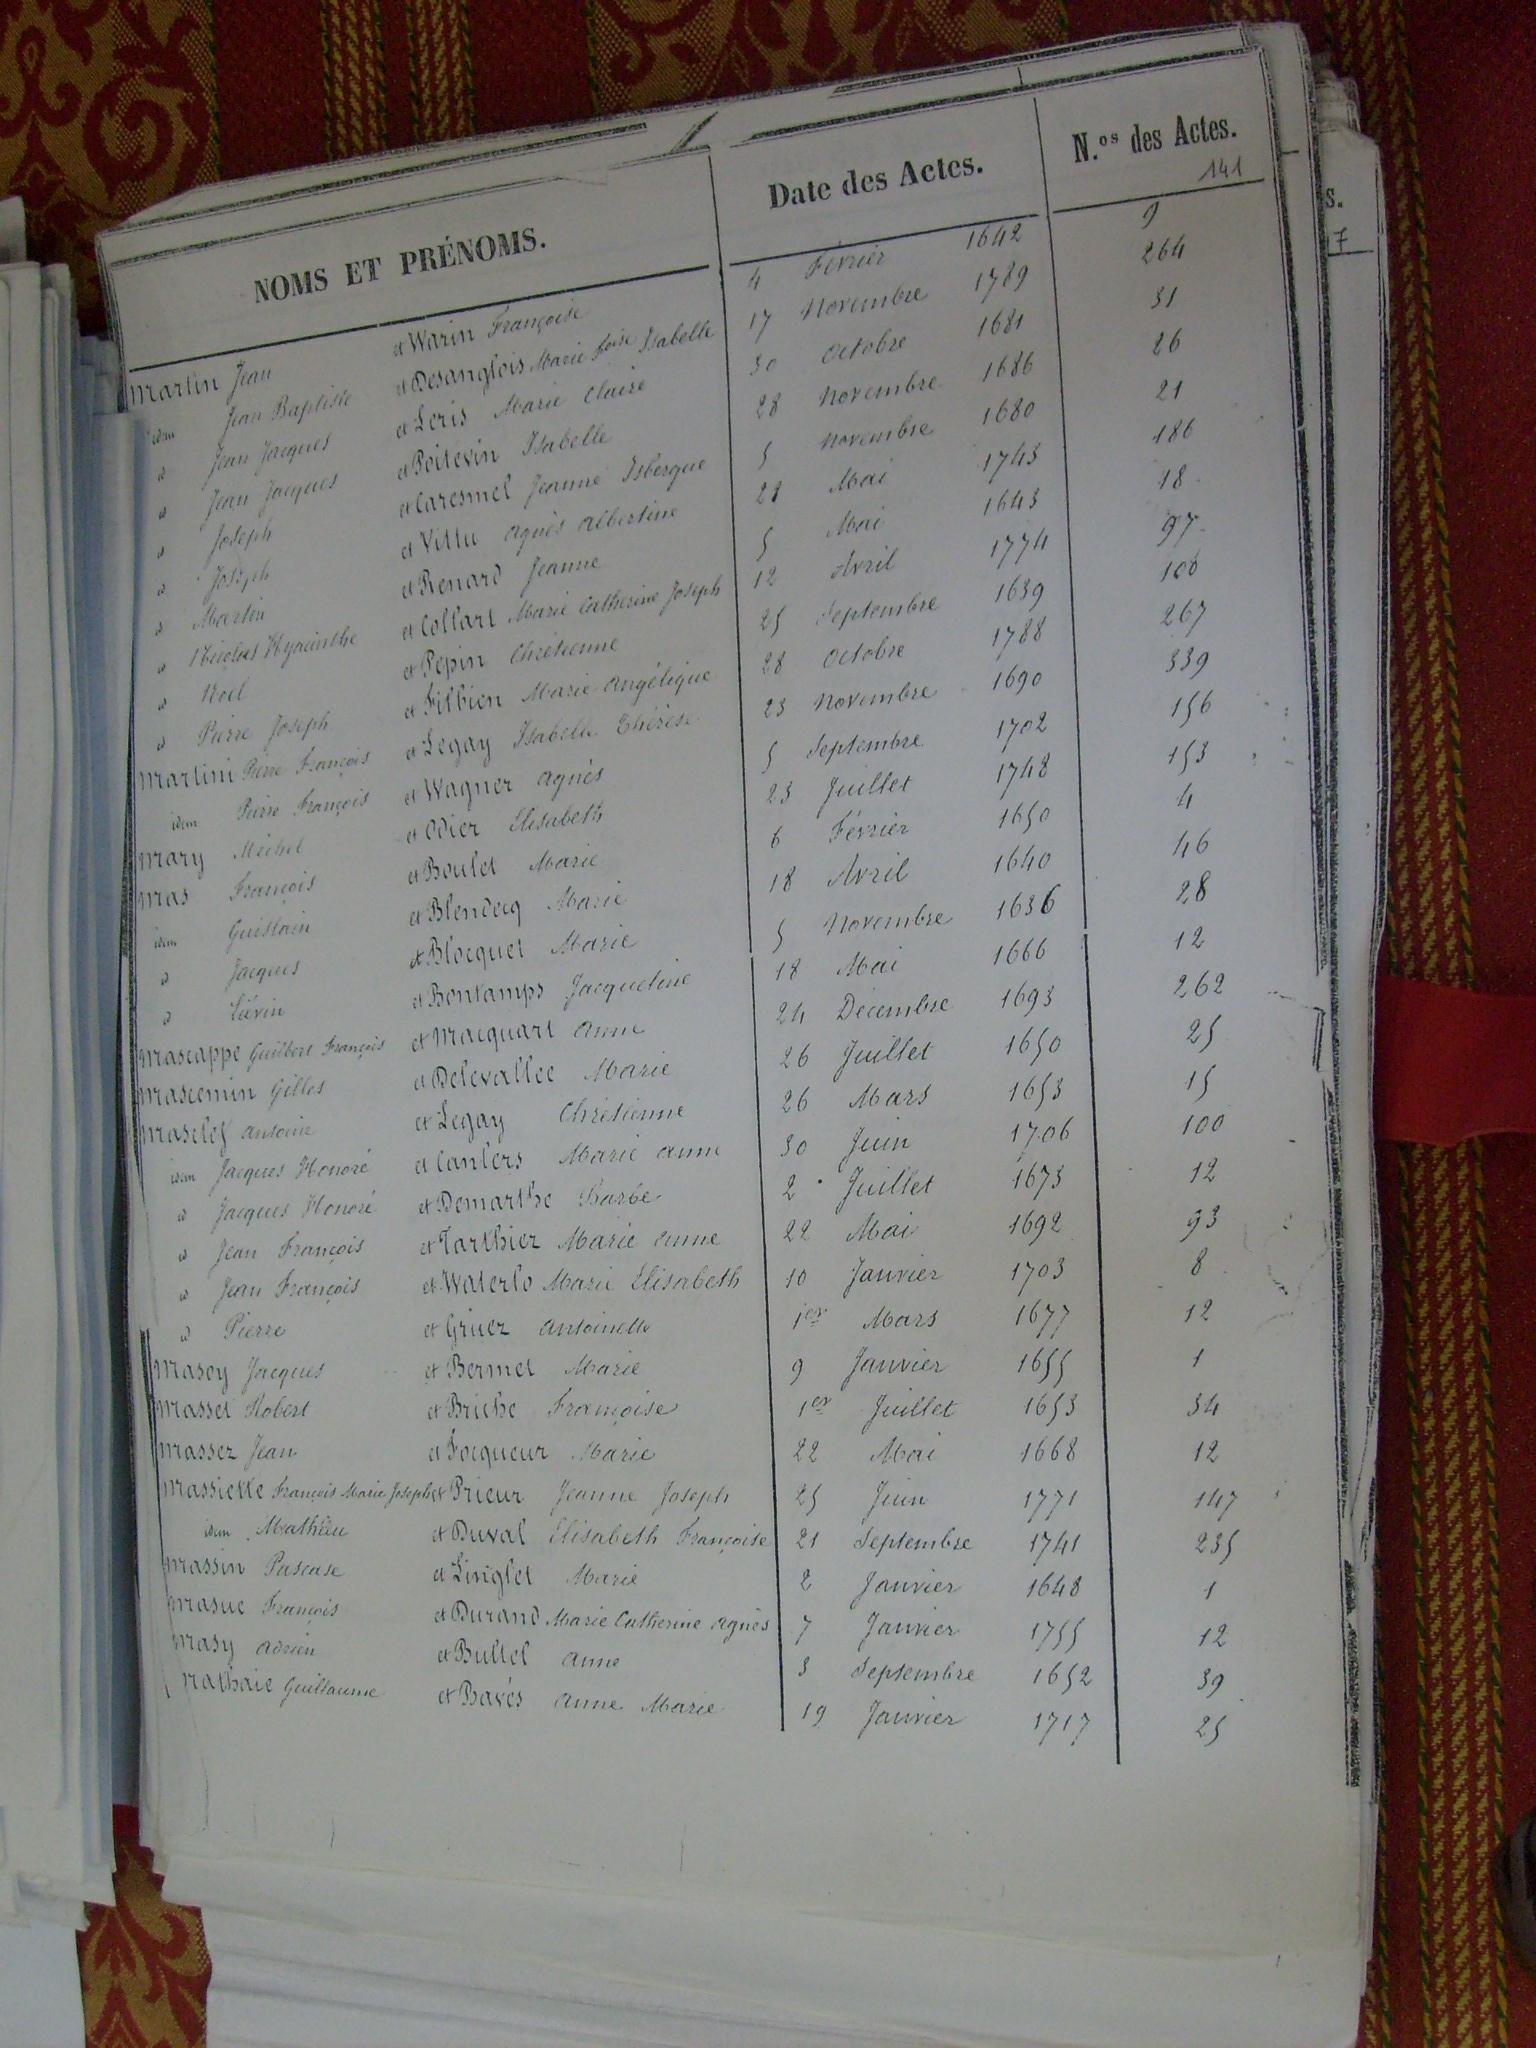 NOMS ET PRÉNOMS. Date des Actes. N.os des Actes.
141
Martin Jean et Warin Françoise 4 Février 1642 9
idem Jean Baptiste et Desanglois Marie Isabelle 17 Novembre 1789 264
d Jean Jacques et Leris Marie Claire 30 Octobre 1681 31
d Jean Jacques et Poitevin Isabelle 28 Novembre 1686 26
d Joseph et Caresmel Jeanne Isbergue 5 Novembre 1680 21
d Joseph et Vittu Agnès Albertine 28 Mai 1743 186
d Martin et Renard Jeanne 5 Mai 1643 18
d Nicolas Hyacinthe et Collart Marie Catherine Joseph 12 Avril 1774 97
d Noel et Pepin Chrétienne 25 Septembre 1639 100
d Pierre Joseph et Filbien Marie Angélique 28 Octobre 1788 267
Martini Pierre François et Legay Isabelle Thérèse 23 Novembre 1690 339
idem Pierre François et Wagner Agnès 5 Septembre 1702 156
Mary Michel et Odier Elisabeth 23 Juillet 1748 153
Mas François et Boulet Marie 6 Février 1650 4
idem Guislain et Blendecq Marie 18 Avril 1640 46
d Jacques et Blocquel Marie 5 Novembre 1636 28
d Liévin et Bontamps Jacqueline 18 Mai 1666 12
Mascappe Guilbert François et Macquart Anne 24 Décembre 1693 262
Mascemin Gilles et Delevallée Marie 26 Juillet 1650 25
Masclef Antoine et Legay Chrétienne 26 Mars 1653 15
idem Jacques Honoré et Canlers Marie Anne 30 Juin 1706 100
d Jacques Honoré et Demarthe Barbe 2 Juillet 1673 12
d Jean François et Tarthier Marie Anne 22 Mai 1692 93
d Jean François et Waterlo Marie Elisabeth 10 Janvier 1703 8
d Pierre et Gruez Antoinette 1er Mars 1677 12
Masoy Jacques et Bermel Marie 9 Janvier 1655 1
Massel Robert et Briche Françoise 1er Juillet 1653 34
Massez Jean et Focqueur Marie 22 Mai 1668 12
Massiette François Marie Joseph et Prieur Jeanne Joseph 25 Juin 1771 147
idem Mathieu et Duval Elisabeth Françoise 21 Septembre 1741 235
Massin Pascase et Linglet Marie 2 Janvier 1648 1
Masue François et Durand Marie Catherine Agnès 7 Janvier 1755 12
Masy Adrien et Bultel Anne 3 Septembre 1652 39
Mathaie Guillaume et Bavés Anne Marie 19 Janvier 1717 25
s.
7